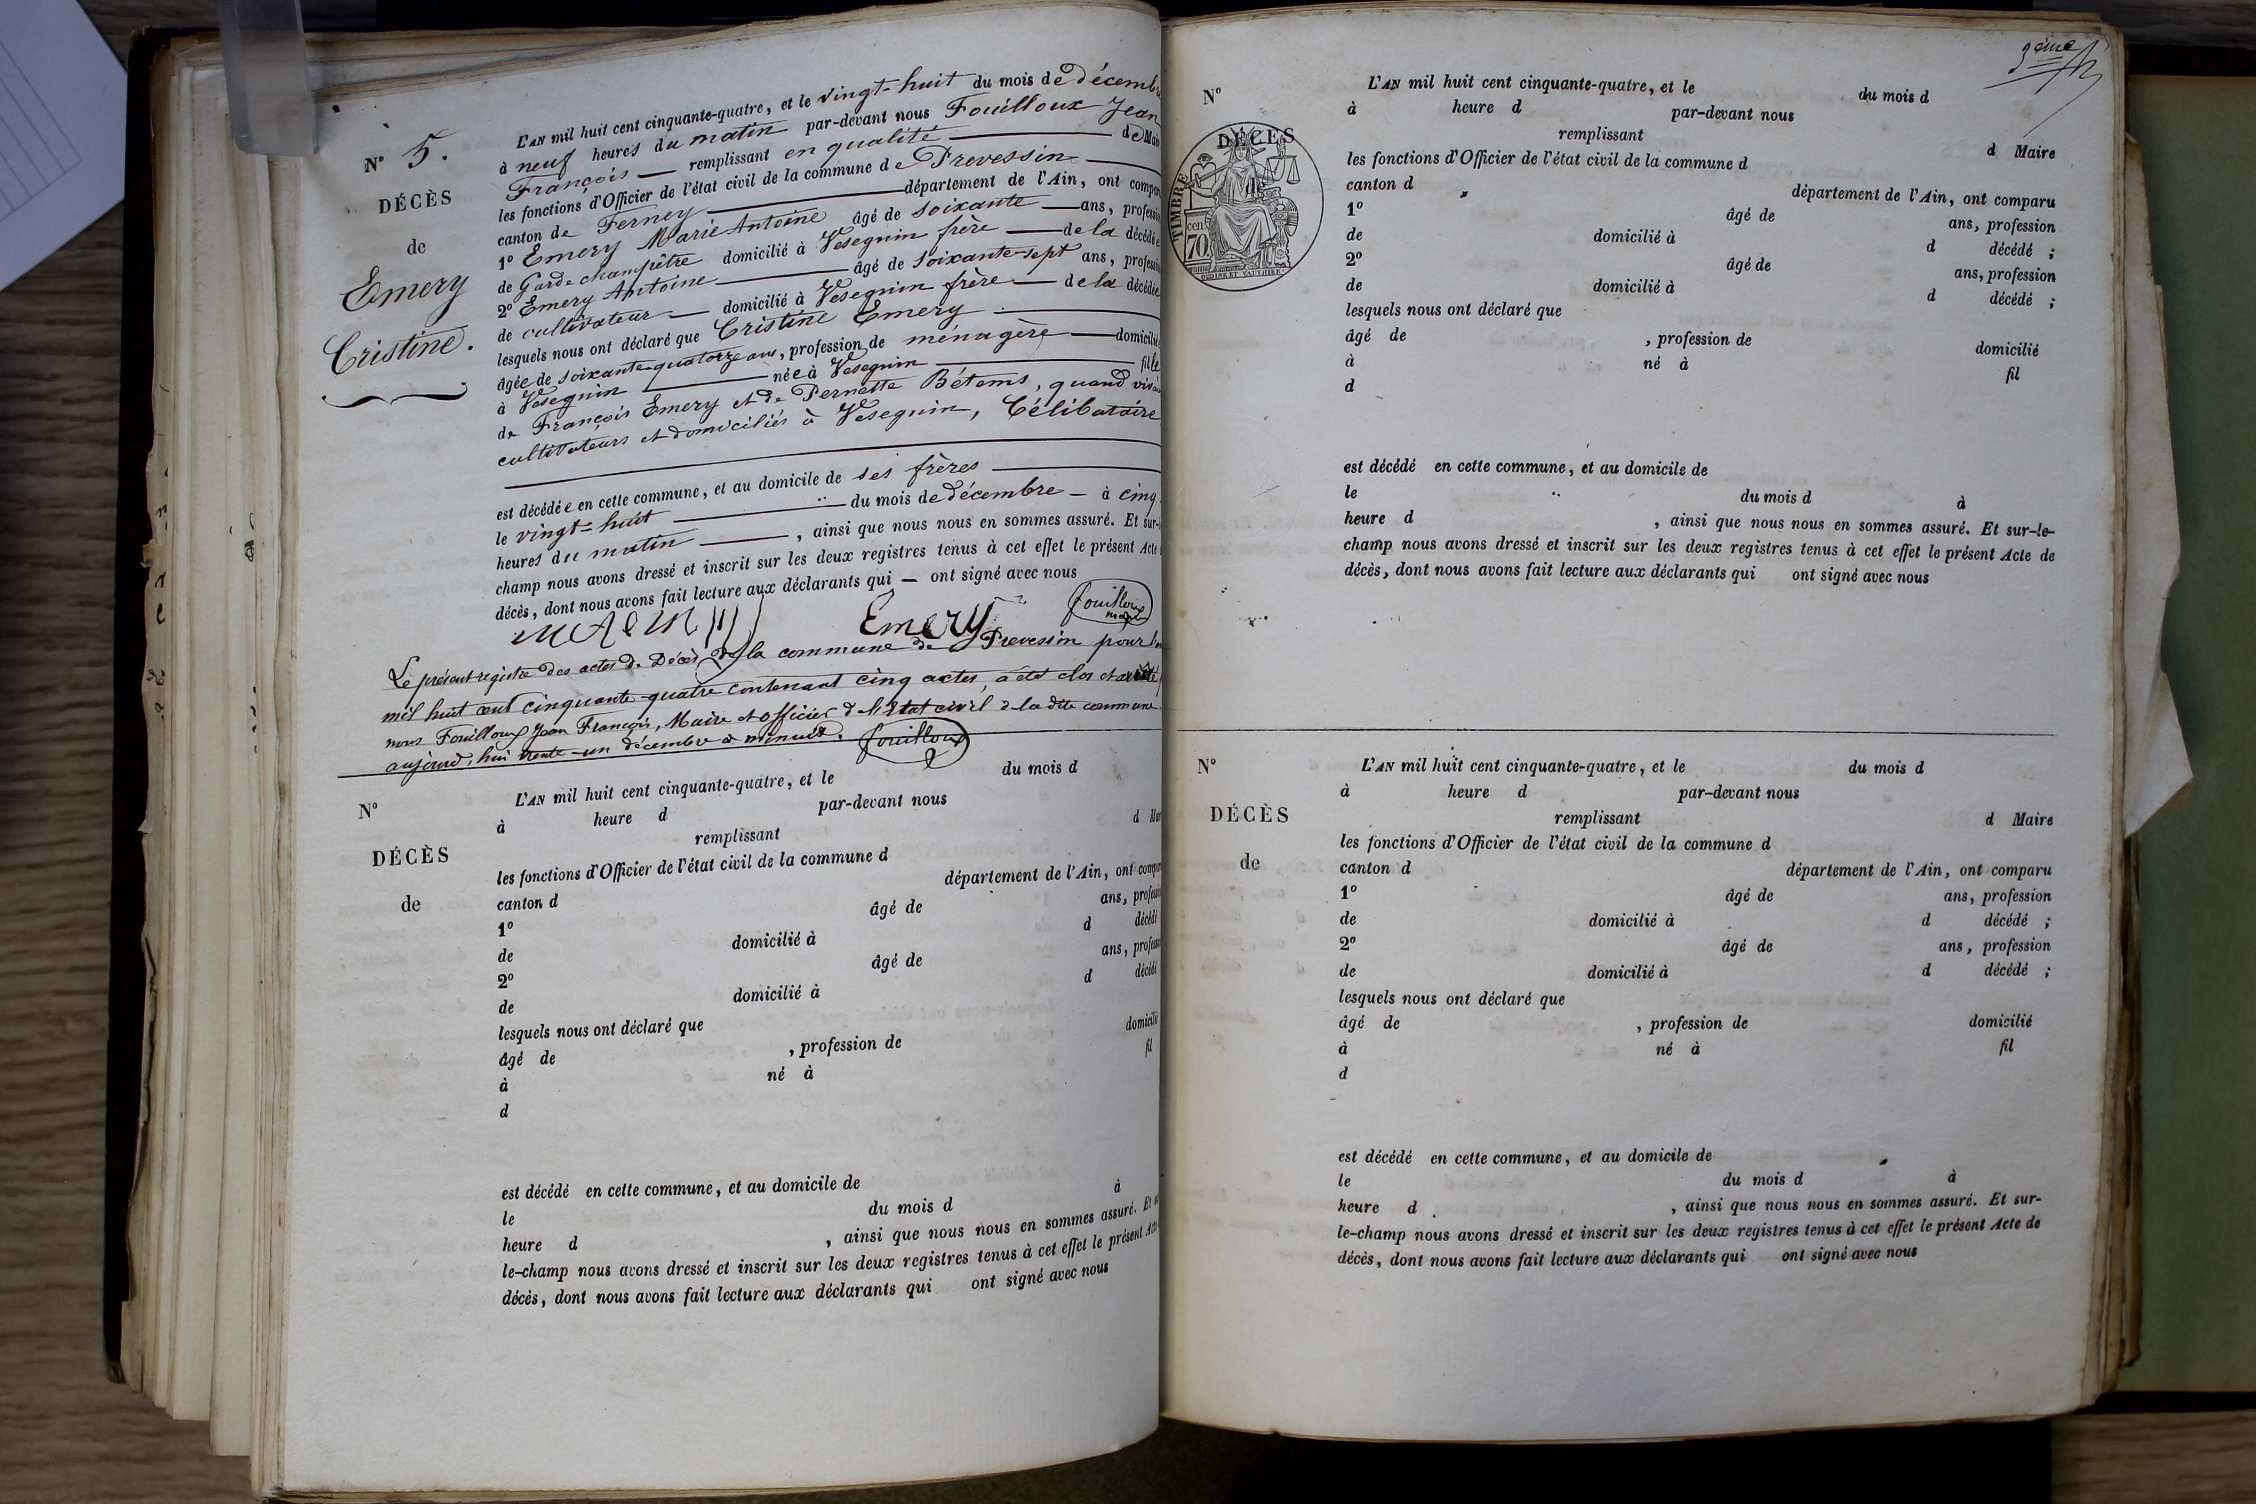 N° 5.
DÉCÈS
de
Emery
Cristine.
L'AN mil huit cent cinquante-quatre, et le vingt-huit du mois de décembre
à neuf heures du matin par-devant nous Fouilloux Jean
François — remplissant en qualité — de Maire
les fonctions d'Officier de l'état civil de la commune de Prevessin
canton de Ferney — département de l'Ain, ont comparu
1° Emery Marie Antoine âgé de soixante — ans, profession
de Garde champêtre domicilié à Vesegnin frère — de la décédée
2° Emery Antoine — âgé de soixante-sept ans, profession
de cultivateur — domicilié à Vesegnin frère — de la décédée
lesquels nous ont déclaré que Cristine Emery
âgée de soixante-quatorze ans, profession de ménagère — domiciliée
à Vesegnin — née à Vesegnin — fille
de François Emery et de Pernette Bétems, quand vivaient
cultivateurs et domiciliés à Vesegnin, Célibataire
est décédée en cette commune, et au domicile de ses frères
le vingt-huit — du mois de décembre — à cinq
heures du matin —, ainsi que nous nous en sommes assuré. Et sur-
champ nous avons dressé et inscrit sur les deux registres tenus à cet effet le présent Acte
décès, dont nous avons fait lecture aux déclarants qui — ont signé avec nous
Emery Fouilloux
maire
Le présent registre des actes de Décès de la commune de Prevessin pour l'an
mil huit cent cinquante-quatre contenant cinq actes, a été clos et arrêté
nous Fouilloux Jean François, Maire et officier de l'Etat civil de la dite commune
aujourd'hui trente-un décembre à minuit. Fouilloux
N°
DÉCÈS
de
L'AN mil huit cent cinquante-quatre, et le du mois d
à heure d par-devant nous
remplissant d Maire
les fonctions d'Officier de l'état civil de la commune d
canton d département de l'Ain, ont comparu
1° âgé de ans, profession
de domicilié à d décédé
2° âgé de ans, profession
de domicilié à d décédé
lesquels nous ont déclaré que
âgé de , profession de domicilié
à né à fil
d
est décédé en cette commune, et au domicile de
le du mois d à
heure d , ainsi que nous nous en sommes assuré. Et
le-champ nous avons dressé et inscrit sur les deux registres tenus à cet effet le présent Acte
décès, dont nous avons fait lecture aux déclarants qui ont signé avec nous
9ème
N°
DÉCÈS
TIMBRE
70 cen
OUDINE ET GAUTHIER
L'AN mil huit cent cinquante-quatre, et le du mois d
à heure d par-devant nous
remplissant d Maire
les fonctions d'Officier de l'état civil de la commune d
canton d département de l'Ain, ont comparu
1° âgé de ans, profession
de domicilié à d décédé ;
2° âgé de ans, profession
de domicilié à d décédé ;
lesquels nous ont déclaré que
âgé de , profession de domicilié
à né à fil
d
est décédé en cette commune, et au domicile de
le du mois d à
heure d , ainsi que nous nous en sommes assuré. Et sur-le-
champ nous avons dressé et inscrit sur les deux registres tenus à cet effet le présent Acte de
décès, dont nous avons fait lecture aux déclarants qui ont signé avec nous
N°
DÉCÈS
de
L'AN mil huit cent cinquante-quatre, et le du mois d
à heure d par-devant nous
remplissant d Maire
les fonctions d'Officier de l'état civil de la commune d
canton d département de l'Ain, ont comparu
1° âgé de ans, profession
de domicilié à d décédé ;
2° âgé de ans, profession
de domicilié à d décédé ;
lesquels nous ont déclaré que
âgé de , profession de domicilié
à né à fil
d
est décédé en cette commune, et au domicile de
le du mois d à
heure d , ainsi que nous nous en sommes assuré. Et sur-
le-champ nous avons dressé et inscrit sur les deux registres tenus à cet effet le présent Acte de
décès, dont nous avons fait lecture aux déclarants qui ont signé avec nous